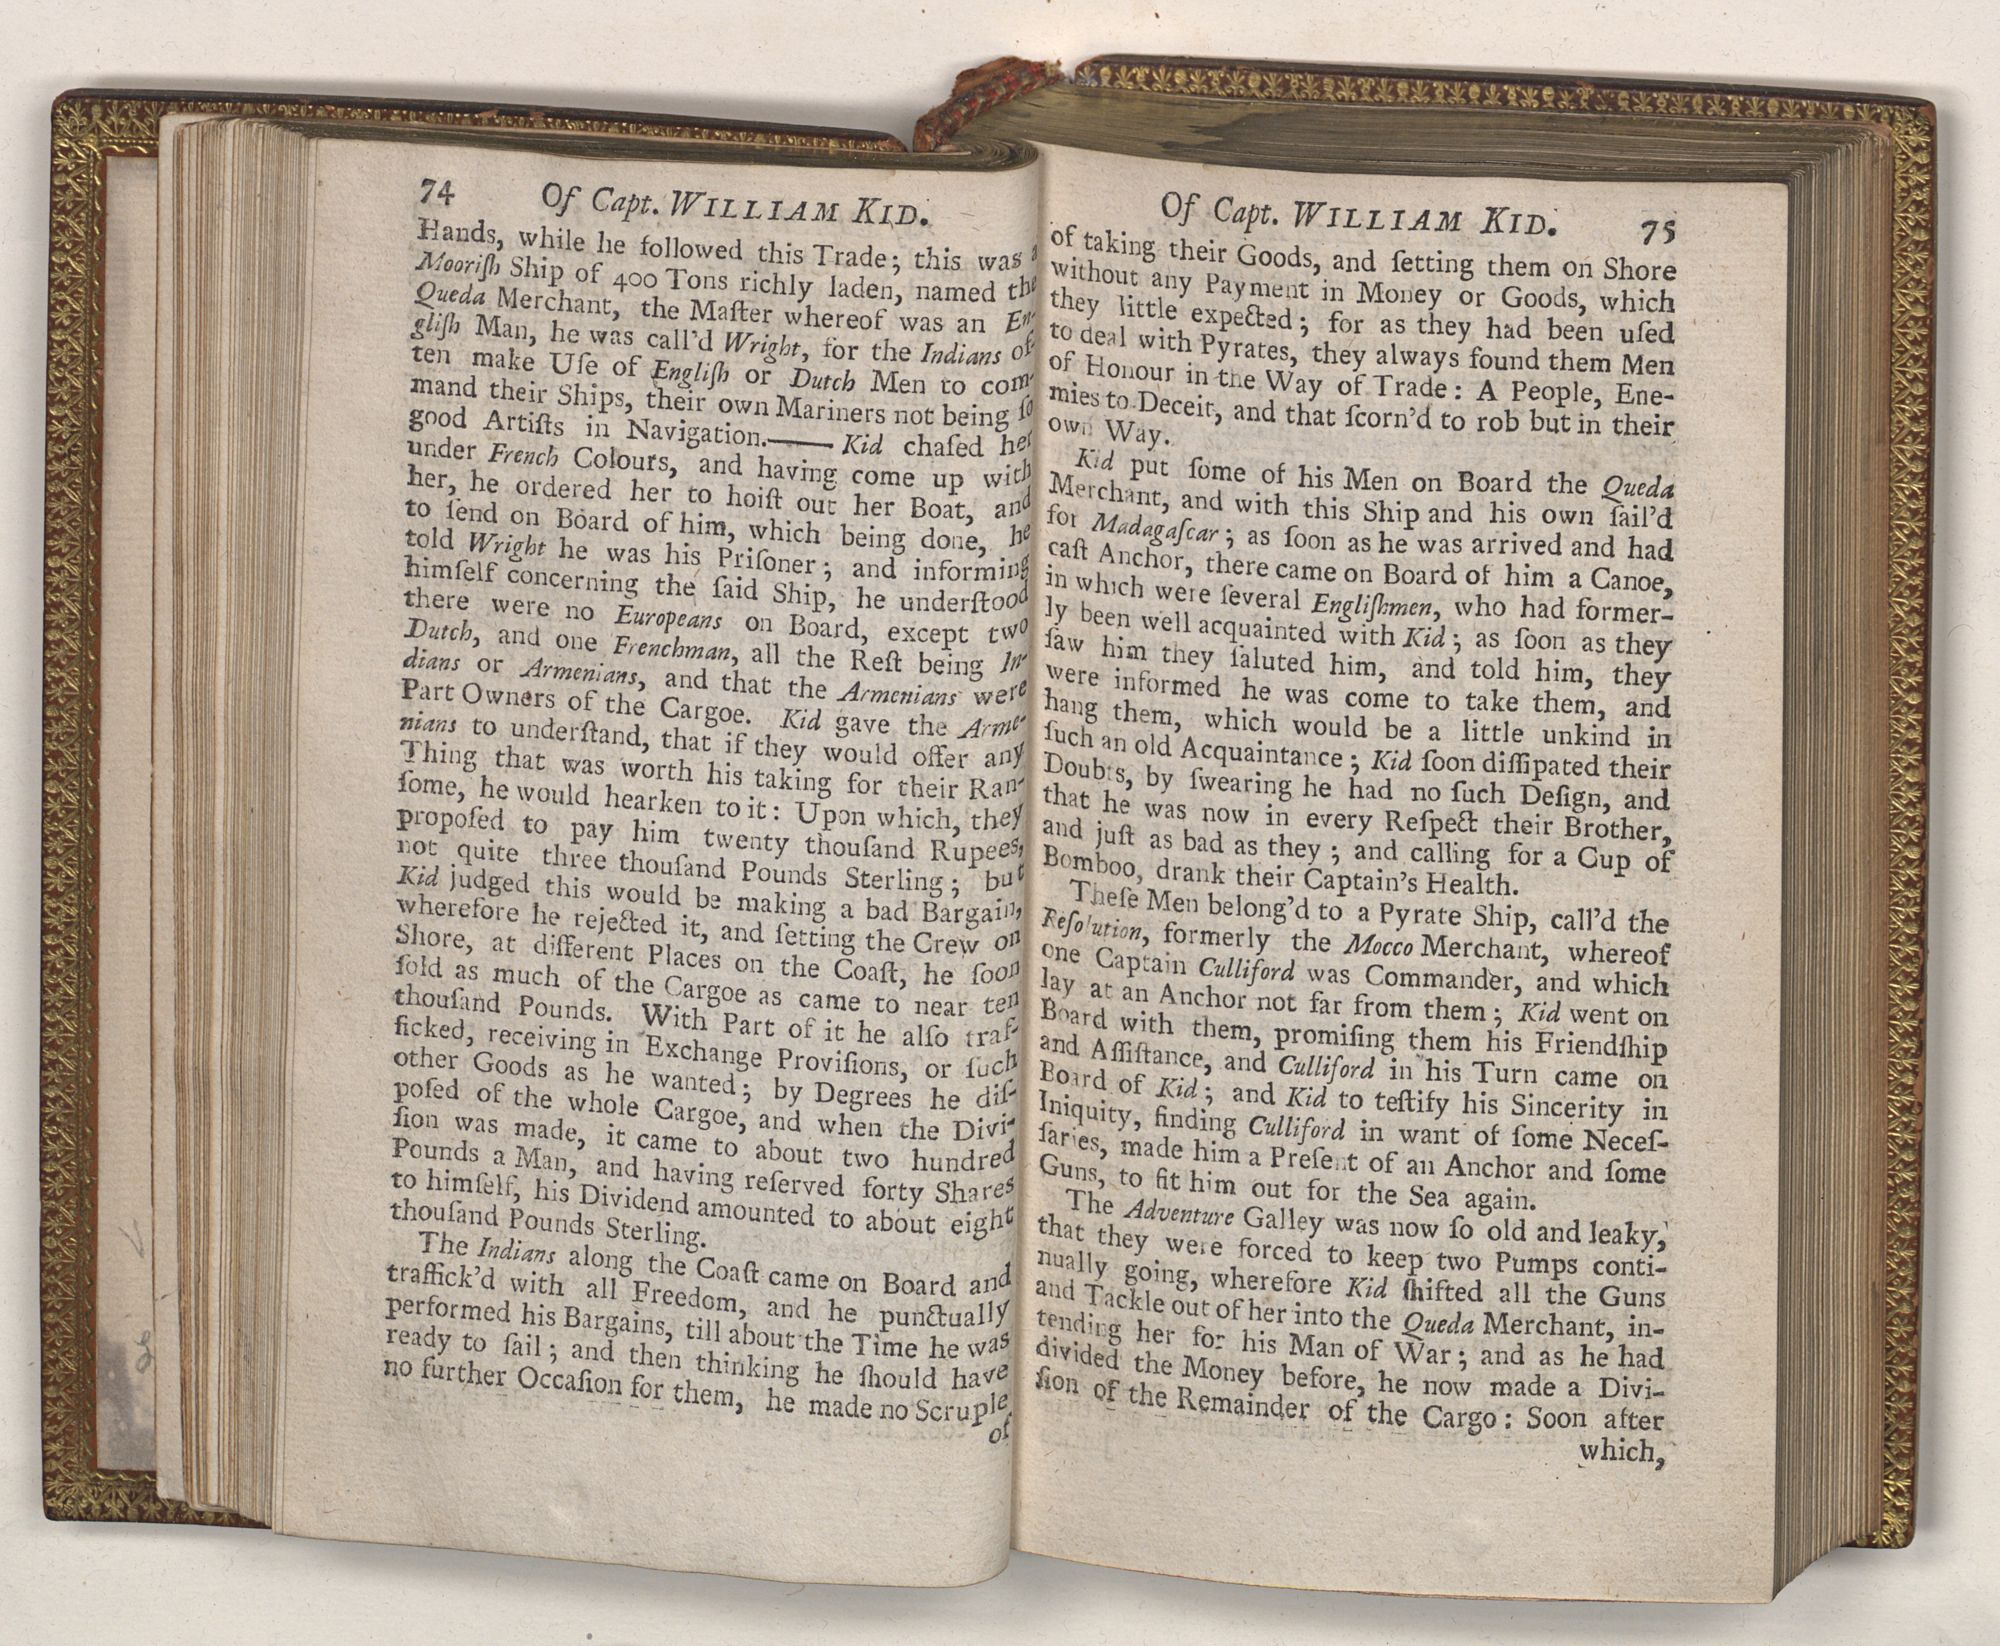 74 Of Capt. WILLIAM KID.
Hands, while he followed this Trade; this was a
Mooriſh Ship of 400 Tons richly laden, named the
Queda Merchant, the Maſter whereof was an En-
gliſh Man, he was call'd Wright, for the Indians of-
ten make Uſe of Engliſh or Dutch Men to com-
mand their Ships, their own Mariners not being ſo
good Artiſts in Navigation.—— Kid chaſed her
under French Colours, and having come up with
her, he ordered her to hoiſt out her Boat, and
to ſend on Board of him, which being done, he
told Wright he was his Priſoner; and informing
himſelf concerning the ſaid Ship, he underſtood
there were no Europeans on Board, except two
Dutch, and one Frenchman, all the Reſt being In-
dians or Armenians, and that the Armenians were
Part Owners of the Cargoe. Kid gave the Arme-
nians to underſtand, that if they would offer any
Thing that was worth his taking for their Ran-
ſome, he would hearken to it: Upon which, they
propoſed to pay him twenty thouſand Rupees,
not quite three thouſand Pounds Sterling; but
Kid judged this would be making a bad Bargain,
wherefore he rejected it, and ſetting the Crew on
Shore, at different Places on the Coaſt, he ſoon
ſold as much of the Cargoe as came to near ten
thouſand Pounds. With Part of it he alſo traf-
ficked, receiving in Exchange Proviſions, or ſuch
other Goods as he wanted; by Degrees he diſ-
poſed of the whole Cargoe, and when the Divi-
ſion was made, it came to about two hundred
Pounds a Man, and having reſerved forty Shares
to himſelf, his Dividend amounted to about eight
thouſand Pounds Sterling.
The Indians along the Coaſt came on Board and
traffick'd with all Freedom, and he punctually
performed his Bargains, till about the Time he was
ready to ſail; and then thinking he ſhould have
no further Occaſion for them, he made no Scruple
of
Of Capt. WILLIAM KID. 75
of taking their Goods, and ſetting them on Shore
without any Payment in Money or Goods, which
they little expected; for as they had been uſed
to deal with Pyrates, they always found them Men
of Honour in the Way of Trade: A People, Ene-
mies to Deceit, and that ſcorn'd to rob but in their
own Way.
Kid put ſome of his Men on Board the Queda
Merchant, and with this Ship and his own ſail'd
for Madagaſcar; as ſoon as he was arrived and had
caſt Anchor, there came on Board of him a Canoe,
in which were ſeveral Engliſhmen, who had former-
ly been well acquainted with Kid; as ſoon as they
ſaw him they ſaluted him, and told him, they
were informed he was come to take them, and
hang them, which would be a little unkind in
ſuch an old Acquaintance; Kid ſoon diſſipated their
Doubts, by ſwearing he had no ſuch Deſign, and
that he was now in every Reſpect their Brother,
and juſt as bad as they; and calling for a Cup of
Bomboo, drank their Captain's Health.
Theſe Men belong'd to a Pyrate Ship, call'd the
Reſolution, formerly the Mocco Merchant, whereof
one Captain Culliford was Commander, and which
lay at an Anchor not far from them; Kid went on
Board with them, promiſing them his Friendſhip
and Aſſiſtance, and Culliford in his Turn came on
Board of Kid; and Kid to teſtify his Sincerity in
Iniquity, finding Culliford in want of ſome Neceſ-
ſaries, made him a Preſent of an Anchor and ſome
Guns, to fit him out for the Sea again.
The Adventure Galley was now ſo old and leaky,
that they were forced to keep two Pumps conti-
nually going, wherefore Kid ſhifted all the Guns
and Tackle out of her into the Queda Merchant, in-
tending her for his Man of War; and as he had
divided the Money before, he now made a Divi-
ſion of the Remainder of the Cargo: Soon after
which,